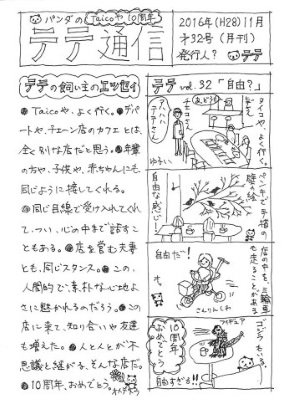 パンダの Taicoや 10周年
テテ通信
2016年(H28)11月
才32号(月刊)
発行人? テテ
テテの飼い主のエッセイ
●Taicoや、よく行く。●デパ
ートや、チェーン店のカフェとは、
全く別な店だと思う。●年輩
の方や、子供や、赤ちゃんにも
同じように接してくれる。
◎同じ目線で受け入れてくれ
て、つい、心の中まで話すこ
ともある。●店を営む夫妻
とも、同じスタンス。●この、
人間的で、素朴な心地よ
さに魅かれるのだろう。●この
店に来て、知り合いや友達
も増えた。●人と人とが不
思議と継がる、そんな店だ。
●10周年、おめでとう。
テテ vol.32「自由?」
タイコや、よく行く。
チエコさん
ゆるい
ペンキで手描の
壁の絵
自由な感じ
店の中を、三輪車
も走ることがある
自由だ〜!
さんりんしゃ
ゴジラもいる。
フィギュア
10周年、
おめでとう
自由すぎる!!